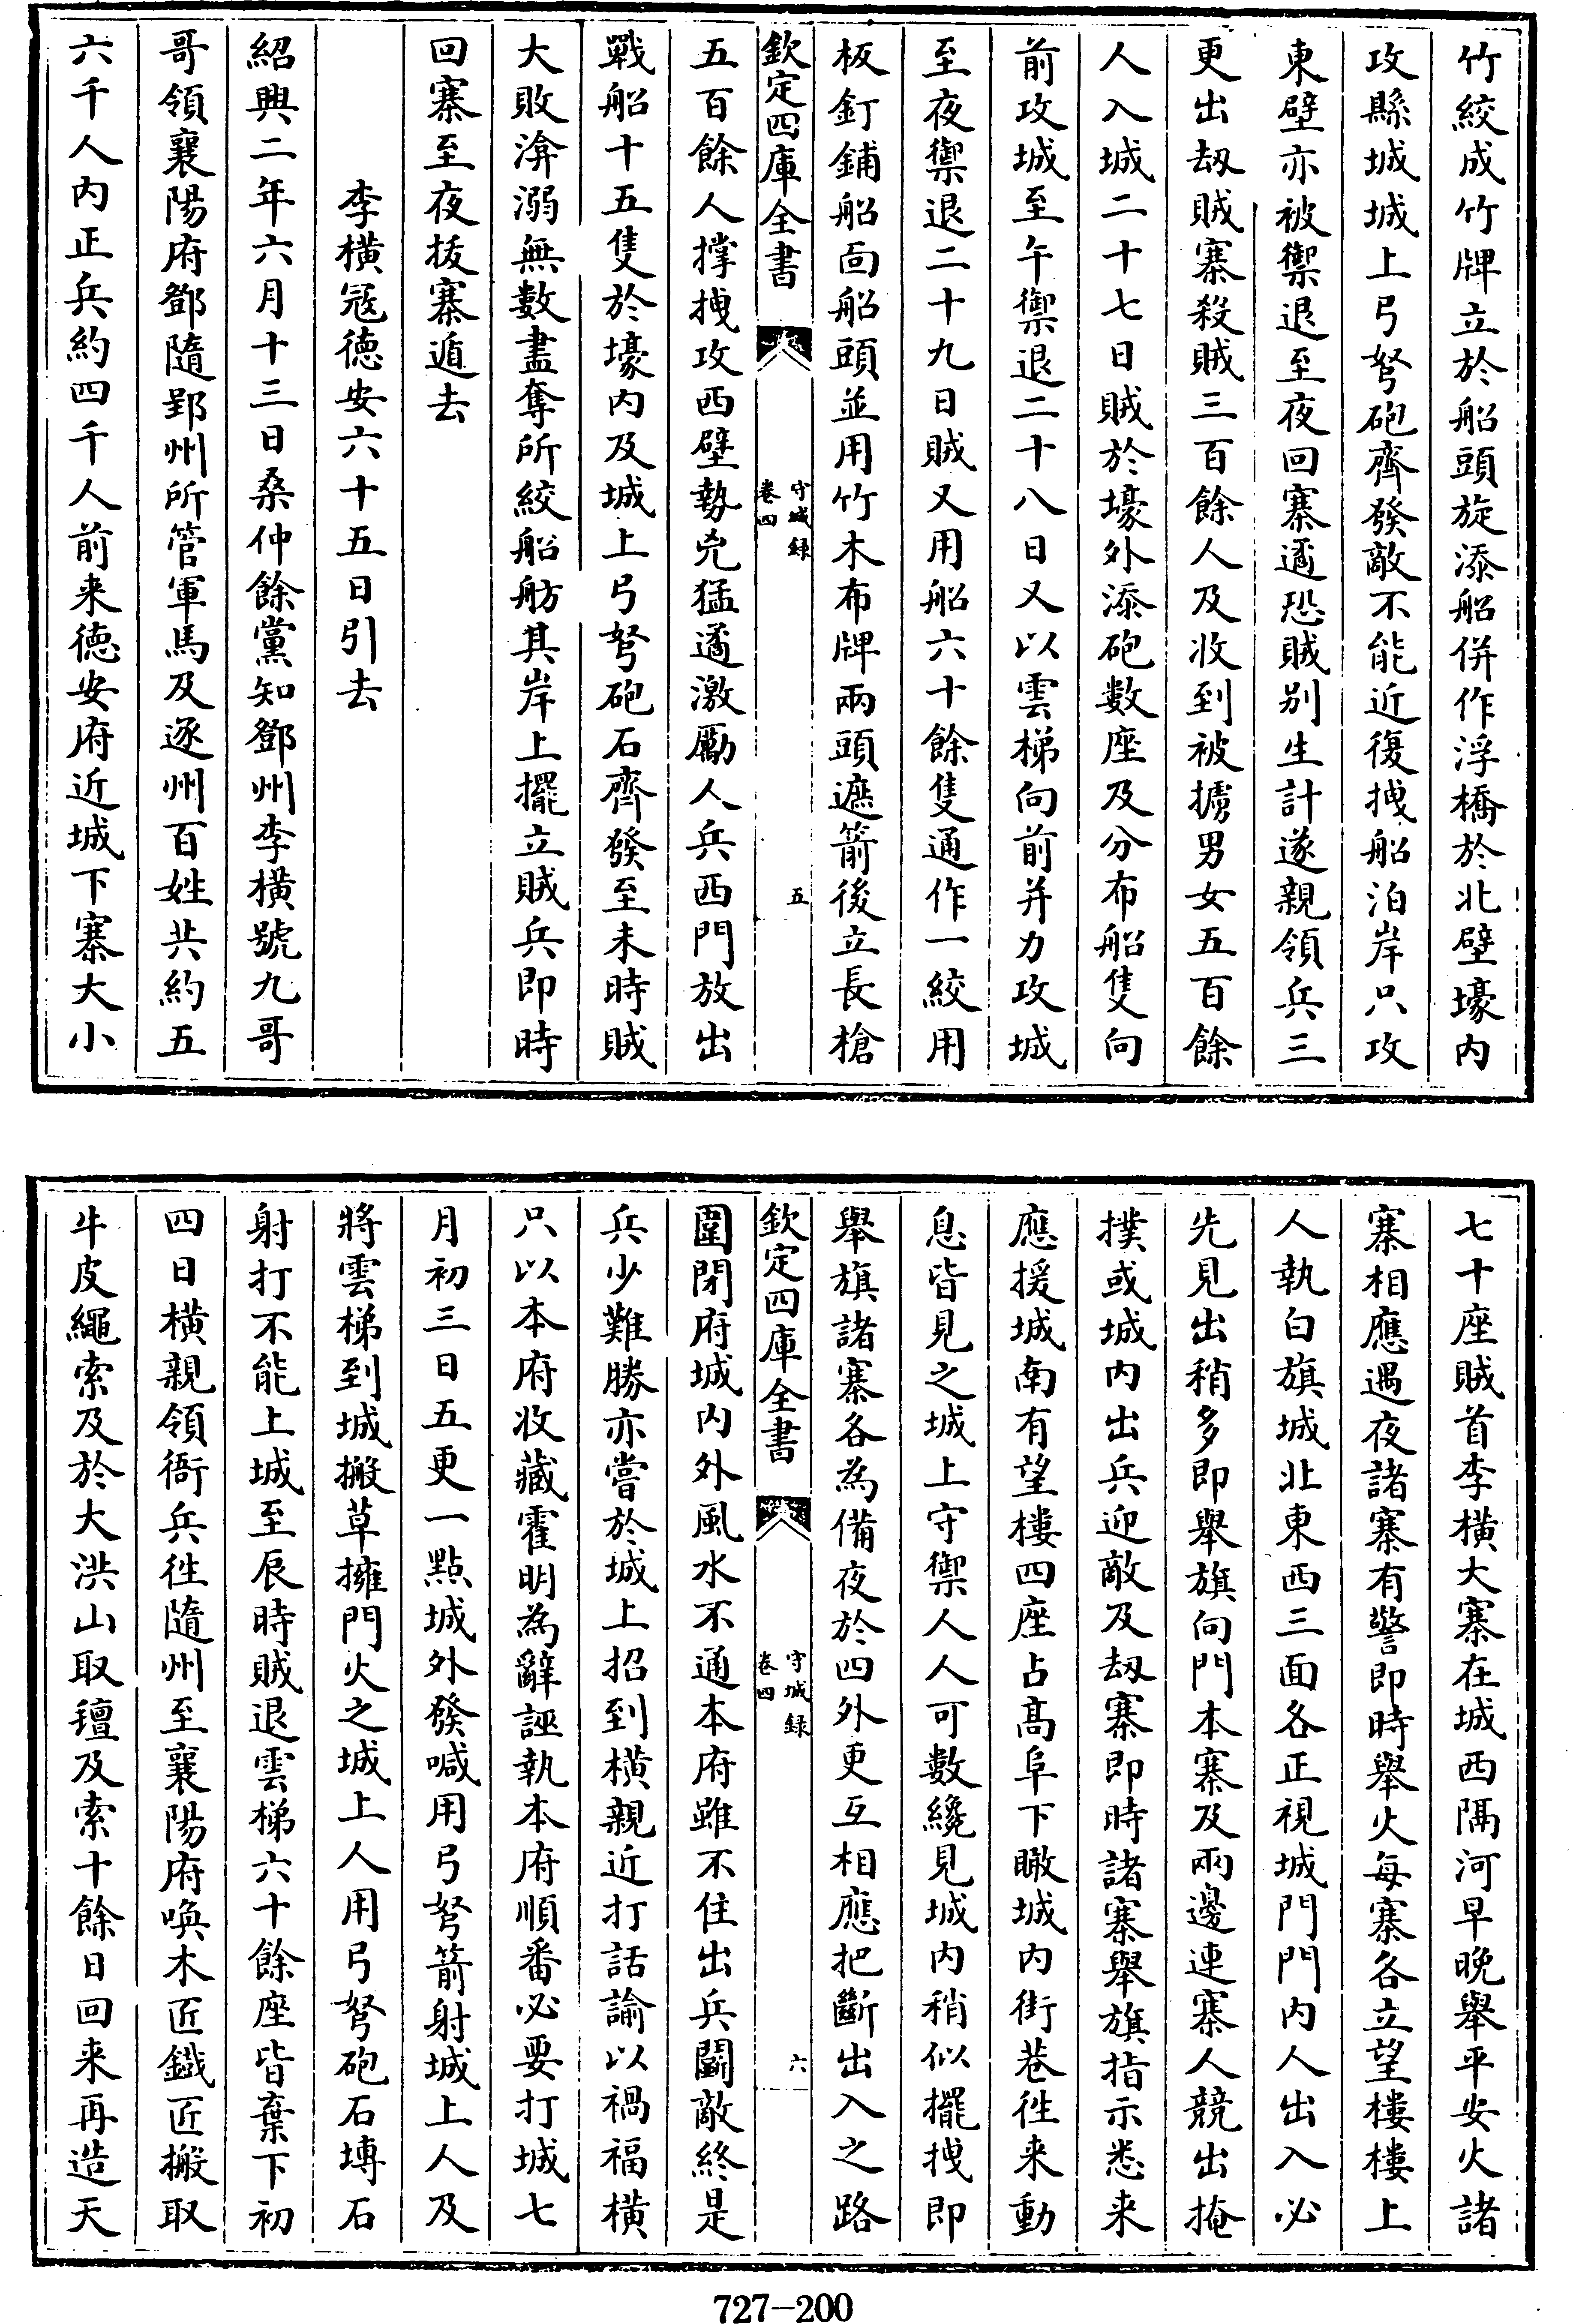 竹絞成竹牌立於船頭旋添船併作浮橋於北壁壕内
攻縣城城上弓弩砲齊發敵不能近復拽船泊岸只攻
東壁亦被禦退至夜回寨遹恐賊别生計遂親領兵三
更出刼賊寨殺賊三百餘人及收到被擄男女五百餘
人入城二十七日賊於壕外添砲數座及分布船隻向
前攻城至午禦退二十八日又以雲梯向前并力攻城
至夜禦退二十九日賊又用船六十餘隻通作一絞用
板釘鋪船面船頭並用竹木布牌兩頭遮箭後立長槍
欽定四庫全書
守城録
卷四
五
五百餘人撑拽攻西壁勢兇猛遹激勵人兵西門放出
戰船十五隻於壕内及城上弓弩砲石齊發至未時賊
大敗渰溺無數盡奪所絞船舫其岸上擺立賊兵即時
回寨至夜拔寨遁去
李横寇德安六十五日引去
紹興二年六月十三日桑仲餘黨知鄧州李横號九哥
哥領襄陽府鄧隨郢州所管軍馬及逐州百姓共約五
六千人内正兵約四千人前来德安府近城下寨大小
七十座賊首李横大寨在城西隅河早晚舉平安火諸
寨相應遇夜諸寨有警即時舉火每寨各立望樓樓上
人執白旗城北東西三面各正視城門門内人出入必
先見出稍多即舉旗向門本寨及兩邊連寨人競出掩
撲或城内出兵迎敵及刼寨即時諸寨舉旗指示悉来
應援城南有望樓四座占髙阜下瞰城内街巷徃来動
息皆見之城上守禦人人可數纔見城内稍似擺拽即
舉旗諸寨各為備夜於四外更互相應把斷出入之路
欽定四庫全書
守城録
卷四
六
圍閉府城内外風水不通本府雖不住出兵鬬敵終是
兵少難勝亦嘗於城上招到横親近打話諭以禍福横
只以本府收藏霍明為辭誣執本府順番必要打城七
月初三日五更一點城外發喊用弓弩箭射城上人及
將雲梯到城搬草擁門火之城上人用弓弩砲石塼石
射打不能上城至辰時賊退雲梯六十餘座皆棄下初
四日横親領衙兵徃隨州至襄陽府喚木匠鐵匠搬取
牛皮繩索及於大洪山取氊及索十餘日回来再造天
727-200